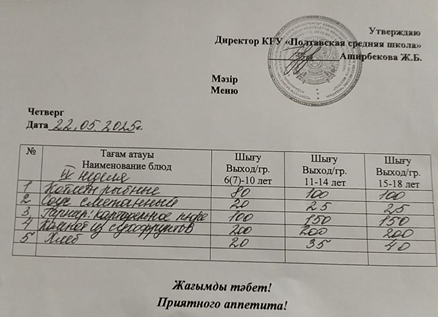 Утверждаю
Директор КГУ «Полтавская средняя школа»
Аширбекова Ж.Б.
Мәзір
Меню
Четверг
Дата 22.05.2025г.
№ Тағам атауы Шығу Шығу Шығу
Наименование блюд Выход/гр. Выход/гр. Выход/гр.
неделя 6(7)-10 лет 11-14 лет 15-18 лет
1 Котлеты рыбные 80 100 100
2 Соус сметанный 20 25 25
3 Гарнир: картофельное пюре 100 150 150
4 Напиток из сухофруктов 200 200 200
5 Хлеб 20 35 40
Жағымды тәбет!
Приятного аппетита!